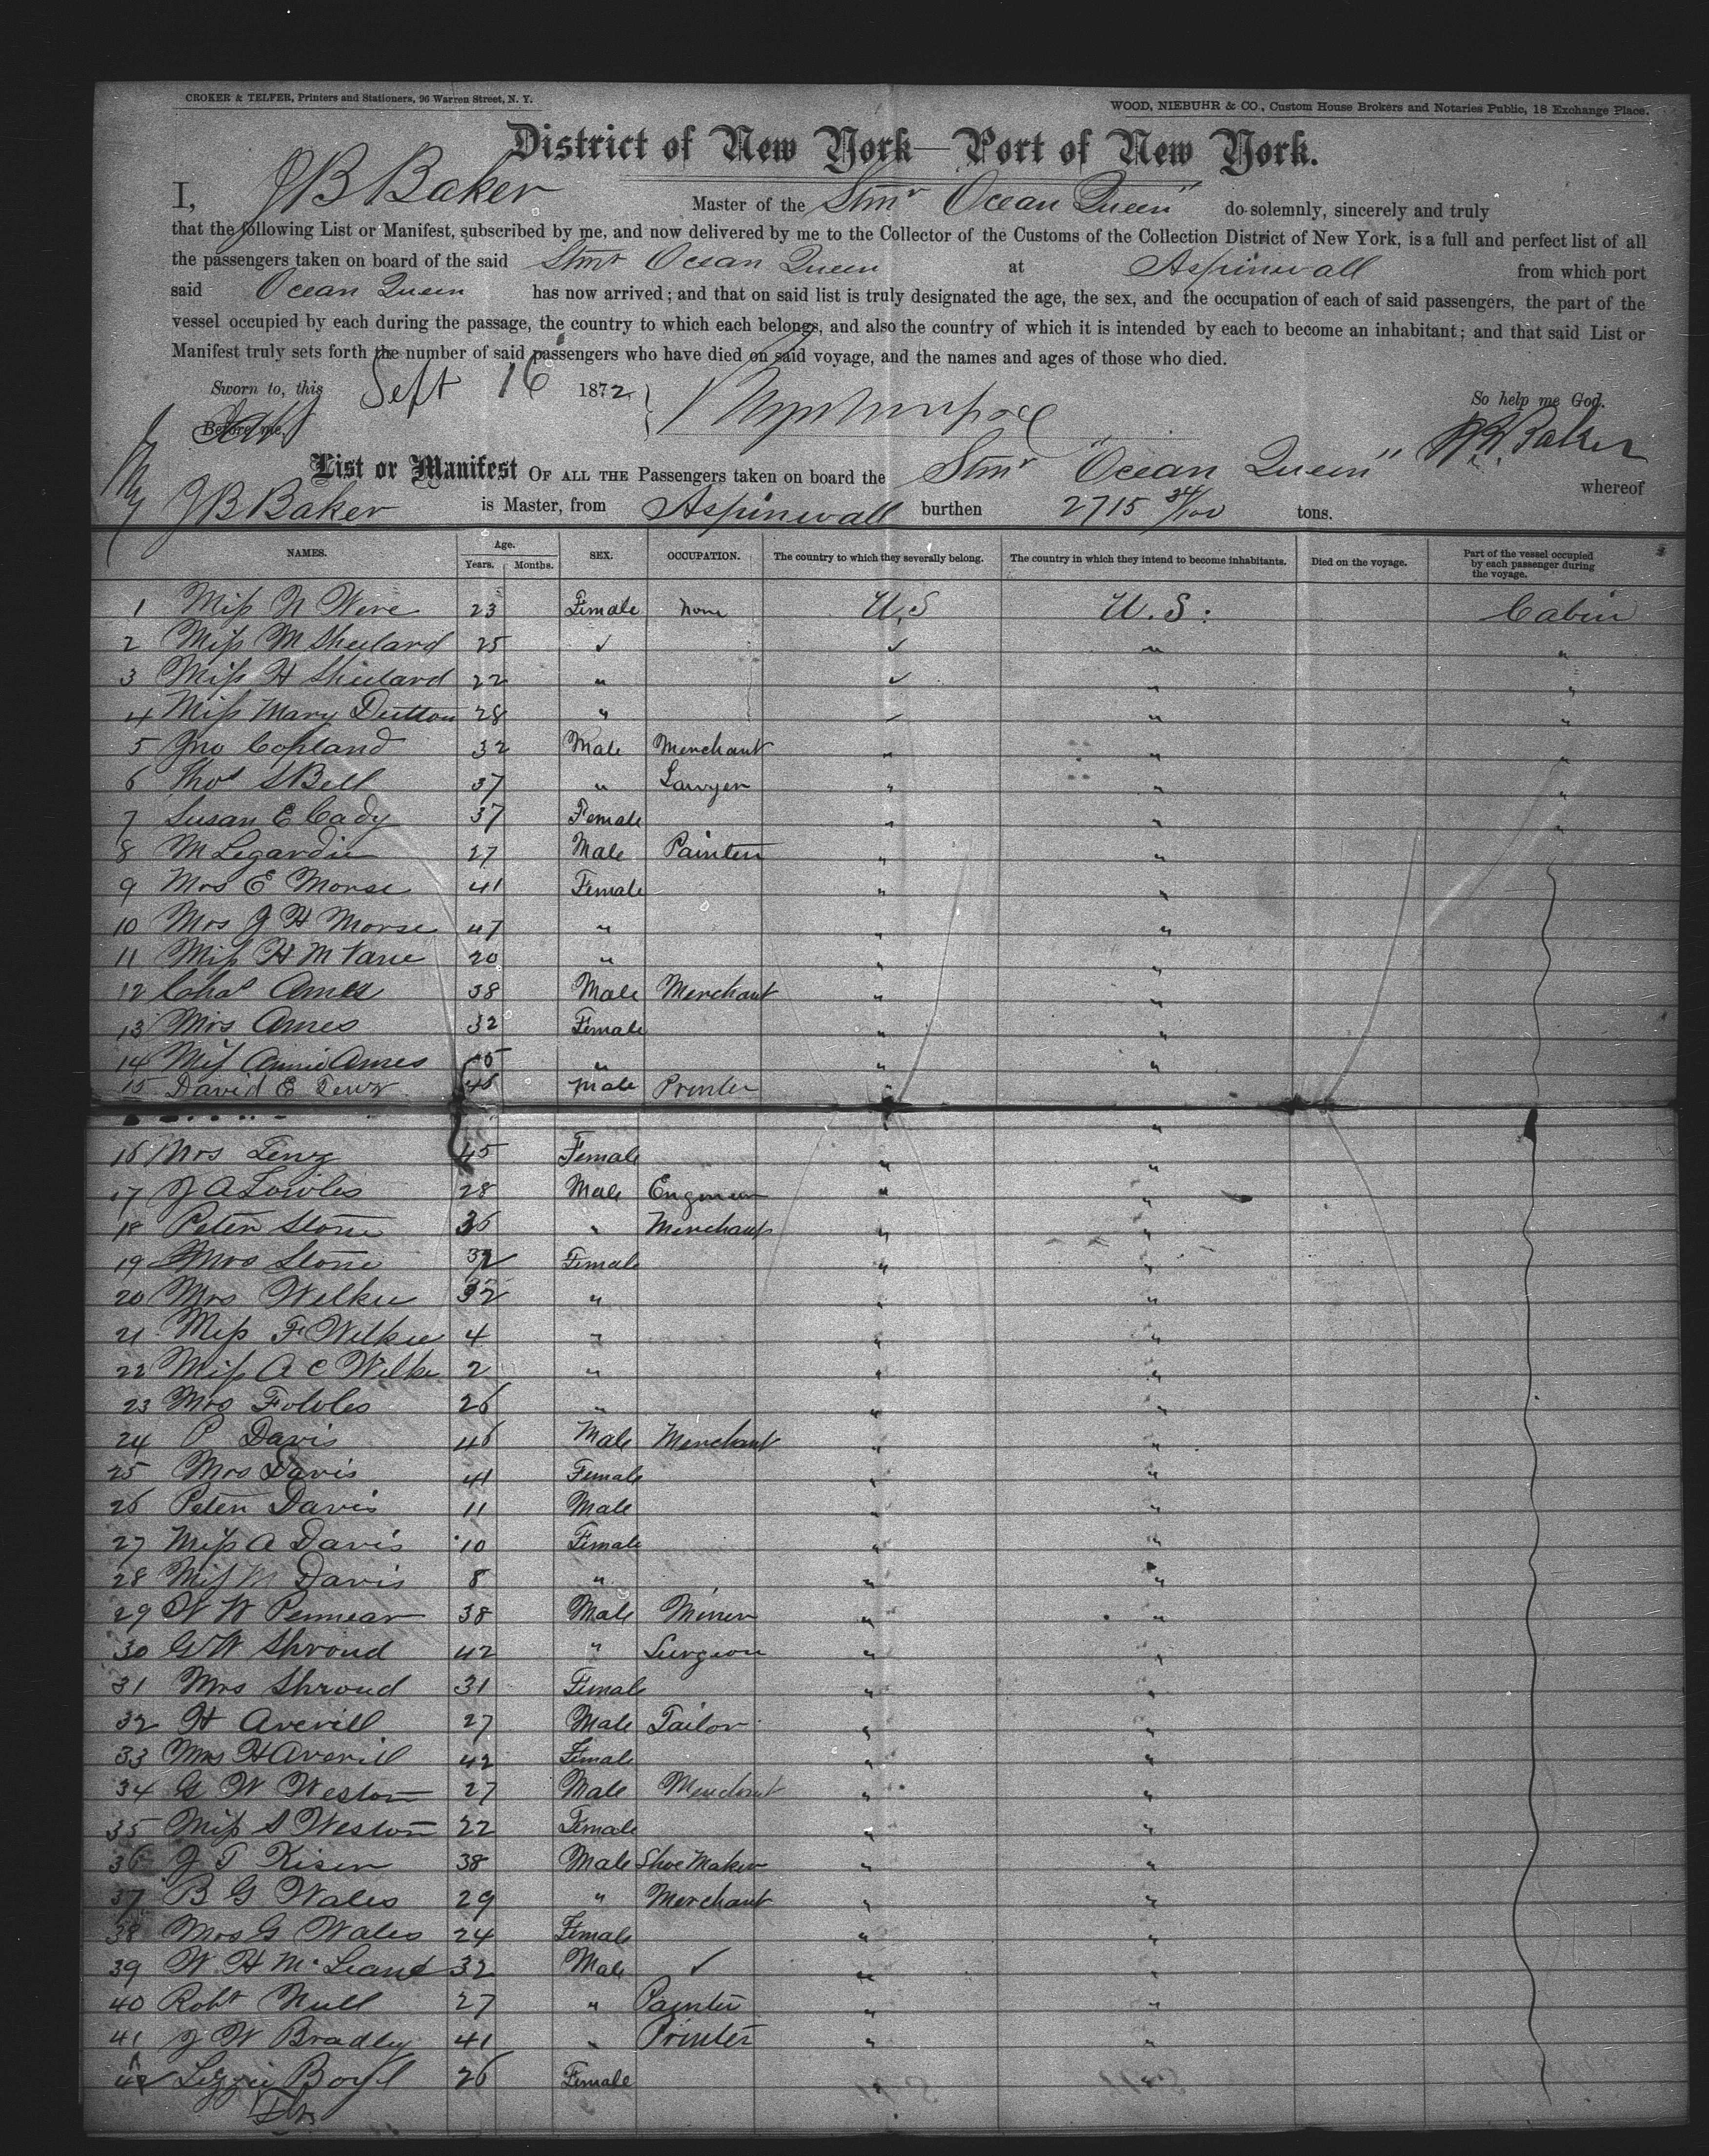 CROKER & TELFER, Printers and Stationers, 96 Warren Street, N. Y.
WOOD, NIEBUHR & CO., Custom House Brokers and Notaries Public, 18 Exchange Place.
District of New York—Port of New York.
I, J B Baker Master of the Stmr "Ocean Queen" do solemnly, sincerely and truly
that the following List or Manifest, subscribed by me, and now delivered by me to the Collector of the Customs of the Collection District of New York, is a full and perfect list of all
the passengers taken on board of the said Stmr Ocean Queen at Aspinwall from which port
said Ocean Queen has now arrived; and that on said list is truly designated the age, the sex, and the occupation of each of said passengers, the part of the
vessel occupied by each during the passage, the country to which each belongs, and also the country of which it is intended by each to become an inhabitant; and that said List or
Manifest truly sets forth the number of said passengers who have died on said voyage, and the names and ages of those who died.
Sworn to, this Sept 16 1872
So help me God.
Before me,
J B Baker
List or Manifest OF ALL THE Passengers taken on board the Stmr "Ocean Queen" whereof
J B Baker is Master, from Aspinwall burthen 2715 34/100 tons.
NAMES. Age. Years. Months. SEX. OCCUPATION. The country to which they severally belong. The country in which they intend to become inhabitants. Died on the voyage. Part of the vessel occupied by each passenger during the voyage.
1 Miss N Were 23 Female None U.S U.S. Cabin
2 Miss M Sheilard 25 ✓ ✓ " "
3 Miss H Sheilard 22 " ✓ " "
4 Miss Mary Dutton 28 " ✓ " "
5 Jno Copland 32 Male Merchant " " "
6 Thos S Bell 37 " Lawyer " " "
7 Susan E Cady 37 Female " " "
8 M Legardie 27 Male Painter " "
9 Mrs E Morse 41 Female " "
10 Mrs J H Morse 47 " " "
11 Miss H M Vane 20 " " "
12 Chas Ames 38 Male Merchant " "
13 Mrs Ames 32 Female " "
14 Miss Annie Ames " " "
15 David E Tewz 46 Male Printer "
16 Mrs Tewz 45 Female " "
17 J A Lowles 28 Male Engineer " "
18 Peter Stone 36 " Merchant " "
19 Mrs Stone 32 Female " "
20 Mrs Welkie 32 " " "
21 Miss F Wilkie 4 " " "
22 Miss A C Wilke 2 " " "
23 Mrs Fowles 26 " " "
24 P Davis 46 Male Merchant " "
25 Mrs Davis 41 Female " "
26 Peter Davis 11 Male " "
27 Miss A Davis 10 Female " "
28 Miss M Davis 8 " " "
29 W W Pennear 38 Male Miner " "
30 G W Shroud 42 " Surgeon " "
31 Mrs Shroud 31 Female " "
32 H Averill 27 Male Tailor " "
33 Mrs H Averill 42 Female " "
34 G W Weston 27 Male Merchant " "
35 Miss S Weston 22 Female " "
36 J T Kiser 38 Male Shoe Maker " "
37 B G Wales 29 " Merchant " "
38 Mrs G Wales 24 Female " "
39 W. H McLeane 32 Male ✓ " "
40 Robt Null 27 " Painter " "
41 J W Bradley 41 " Printer " "
42 Lizzie Boyl 26 Female "